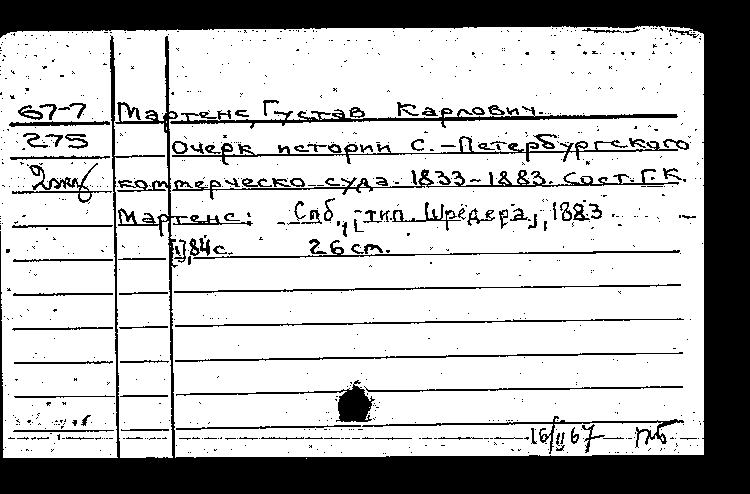 67-7 Мартенс, Густав Карлович.
275 Очерк истории С.-Петербургского
2экз коммерческо суда. 1833-1883. Сост. Г.К.
Мартенс: Спб., [тип. Шредера], 1883.
[1], 84 с. 26 cm.
16/II 67